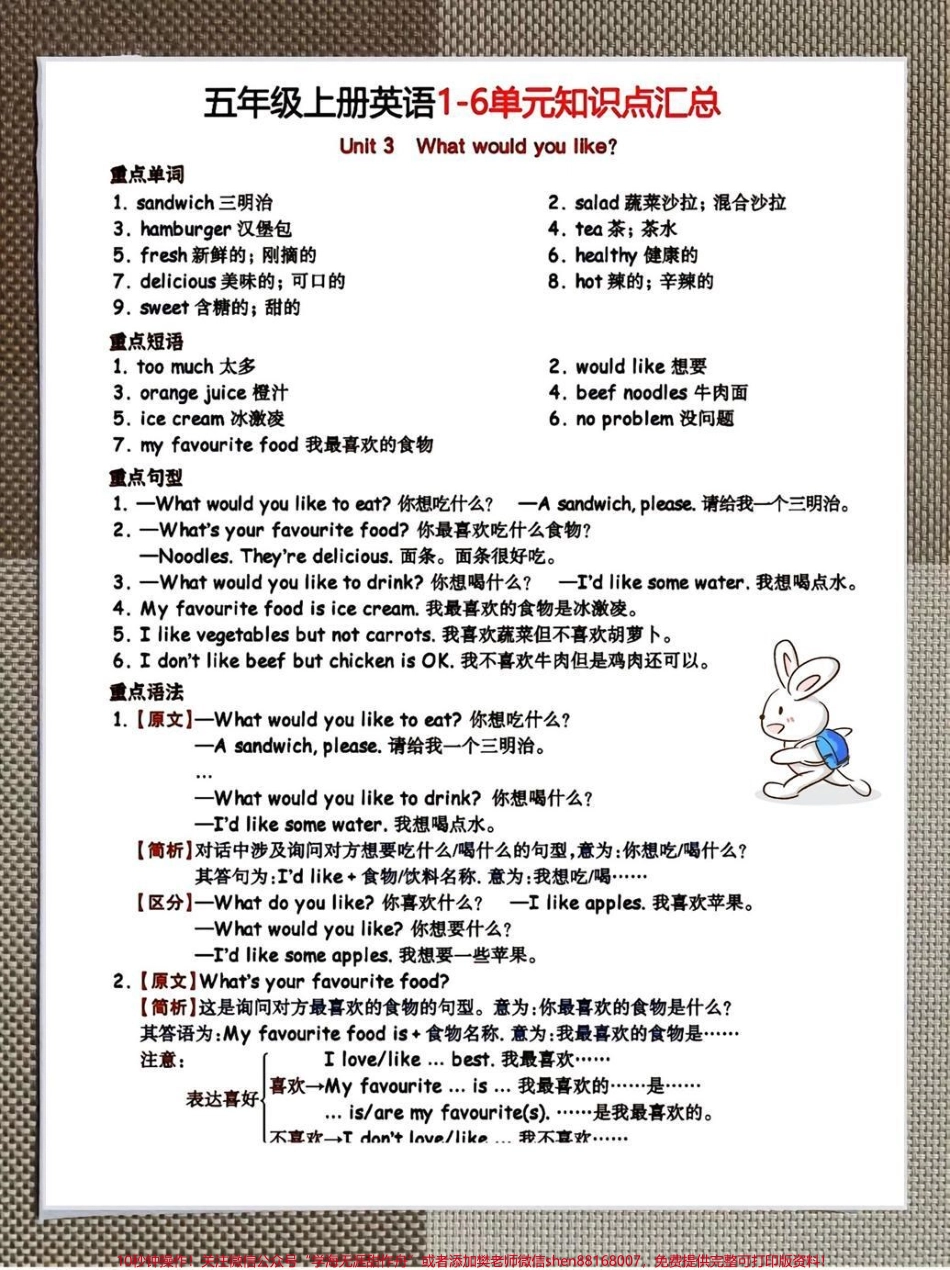 五年级上册英语1-6单元知识点汇总
Unit 3 What would you like?
重点单词
1. sandwich 三明治 2. salad 蔬菜沙拉；混合沙拉
3. hamburger 汉堡包 4. tea 茶；茶水
5. fresh 新鲜的；刚摘的 6. healthy 健康的
7. delicious 美味的；可口的 8. hot 辣的；辛辣的
9. sweet 含糖的；甜的
重点短语
1. too much 太多 2. would like 想要
3. orange juice 橙汁 4. beef noodles 牛肉面
5. ice cream 冰激凌 6. no problem 没问题
7. my favourite food 我最喜欢的食物
重点句型
1. —What would you like to eat? 你想吃什么？ —A sandwich, please. 请给我一个三明治。
2. —What's your favourite food? 你最喜欢吃什么食物？
—Noodles. They're delicious. 面条。面条很好吃。
3. —What would you like to drink? 你想喝什么？ —I'd like some water. 我想喝点水。
4. My favourite food is ice cream. 我最喜欢的食物是冰激凌。
5. I like vegetables but not carrots. 我喜欢蔬菜但不喜欢胡萝卜。
6. I don't like beef but chicken is OK. 我不喜欢牛肉但是鸡肉还可以。
重点语法
1.【原文】—What would you like to eat? 你想吃什么？
—A sandwich, please. 请给我一个三明治。
…
—What would you like to drink? 你想喝什么？
—I'd like some water. 我想喝点水。
【简析】对话中涉及询问对方想要吃什么/喝什么的句型，意为：你想吃/喝什么？
其答句为：I'd like + 食物/饮料名称. 意为：我想吃/喝……
【区分】—What do you like? 你喜欢什么？ —I like apples. 我喜欢苹果。
—What would you like? 你想要什么？
—I'd like some apples. 我想要一些苹果。
2.【原文】What's your favourite food?
【简析】这是询问对方最喜欢的食物的句型。意为：你最喜欢的食物是什么？
其答语为：My favourite food is + 食物名称. 意为：我最喜欢的食物是……
注意： I love/like … best. 我最喜欢……
表达喜好 喜欢→My favourite … is … 我最喜欢的……是……
… is/are my favourite(s). ……是我最喜欢的。
不喜欢→I don't love/like … 我不喜欢……
10秒钟操作！关注微信公众号 或者添加樊老师微信shen88168007，免费提供完整可打印版资料！